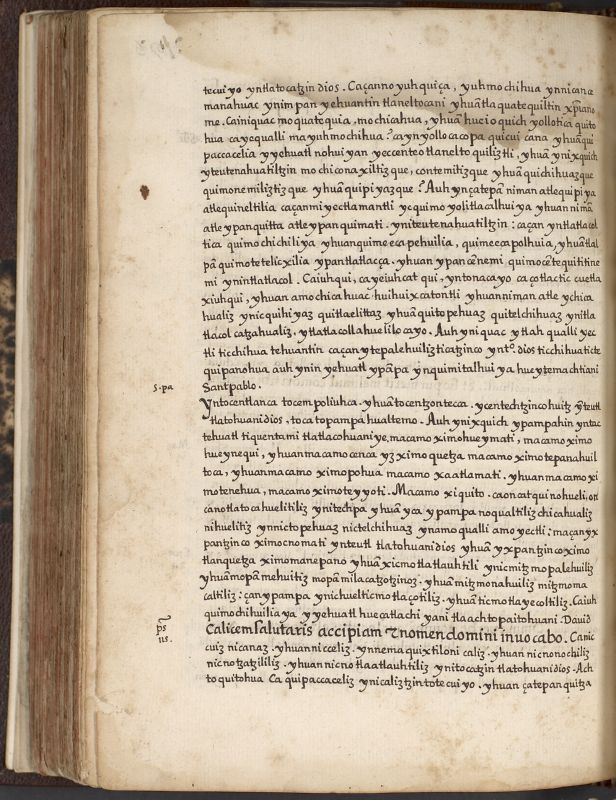 tecuiyo yntlatocatzin dios. Caçanno yuhquiça, yuhmochihua ynnicane
manahuac ynimpan yehuantin tlaneltocani yhuã tlaquatequiltin xp̃iano
me. Cainiquac moquatequia, mochicahua, yhuã huel oquich yollotica quito
hua cayequalli mayuhmochihua? caynyollocacopa quicuicana yhuã qui
paccacelia yyehuatl nohuiyan yeccenteotlanelto quiliztli, yhuã ynixquich
yteutenahuatiltzin mochiconaxiltizque, contemitizque yhuã quichihuazque
quimonemiliztizque yhuã quipiyazque? Auh ynçatepã niman atle quipiya
atle quineltilia caçanmi yectlamantli yc quimoyolitlacalhuiya yhuan nimã
atle ypanquitta atle ypan quimati. yniteutenahuatiltzin: caçan yntlatlacol
tica quimochichiliya yhuan quimeecapehuilia, quimeecapolhuia, yhuã tlal
pã quimotetelicxilia ypantlatlacça. yhuan ypan cẽnemi quimocẽtequititine
mi ynintlatlacol. Caiuhqui, cayeiuhcatqui, yntonacayo caçotlactic cuetla
xiuhqui, yhuan amo chicahuac huihuixcatontli yhuan niman atle ychica
hualiz ynic quihiyaz quitlaelittaz yhuã quitopehuaz quitelchihuaz ynitla
tlacol catzahualiz, ytlatlacollahuelilocayo. Auh yniquac ytlah qualli yec
tli ticchihua tehuantin caçan ytepalehuiliztica tzinco ynto. dios ticchihua ticte
quipanohua auh ynin yehuatl ypãpa yn quimitalhuiya huey temachtiani
S. pa
Sant pablo.
Yntocentlanca tocempoliuhca. yhuã tocentzontecca. ycentechtzinco huitz yteutl
tlatohuani dios. tocatopampa hualtemo. Auh ynixquich ypampahin yntac
tehuatl tiquentami tlatlacohuaniye, macamo ximohueymati, macamo ximo
hueynequi, yhuan macamo cenca yz ximoquetza macamo ximotepanahuil
toca, yhuan macamo ximopohua macamo xaatlamati. yhuan macamo xi
motenehua, macamo ximoteyyoti. Macamo xiquito. caoncatqui nohueli, on
canotlatocahuelitiliz ynitechpa yhuã yca ypampa noqualtiliz chicahualiz
nihuelitiz ynnictopehuaz nictelchihuaz ynamo qualli amo yectli: maçan yx
pantzinco ximocnomati ynteutl tlatohuani dios yhuã yxpantzinco ximo
tlanquetza ximomanepano yhuã xicmotlatlauhtili ynic mitzmopalehuiliz
yhuã mopãmehuitiz mopã milacatzotzinoz. yhuã mitzmonahuiliz mitzmoma
caltiliz: çan ypampa ynichuelticmotlaçotiliz. yhuã ticmotlayecoltiliz. Caiuh
quimochihuilia ya yyehuatl huecatlachi yani tlaachtopaitohuani. David
ps
us.
Calicem salutaris accipiam & nomen domini inuocabo. Canic
cuiz nicanaz yhuan nicceliz. ynnemaquixtiloni caliz. yhuan nicnonochiliz
nicnotzatziliz. yhuan nicnotlaatlauhtiliz ynitocatzin tlatohuani dios. Ach
to quitohua Ca quipaccaceliz ynicaliztzin totecuiyo. yhuan çatepan quitza